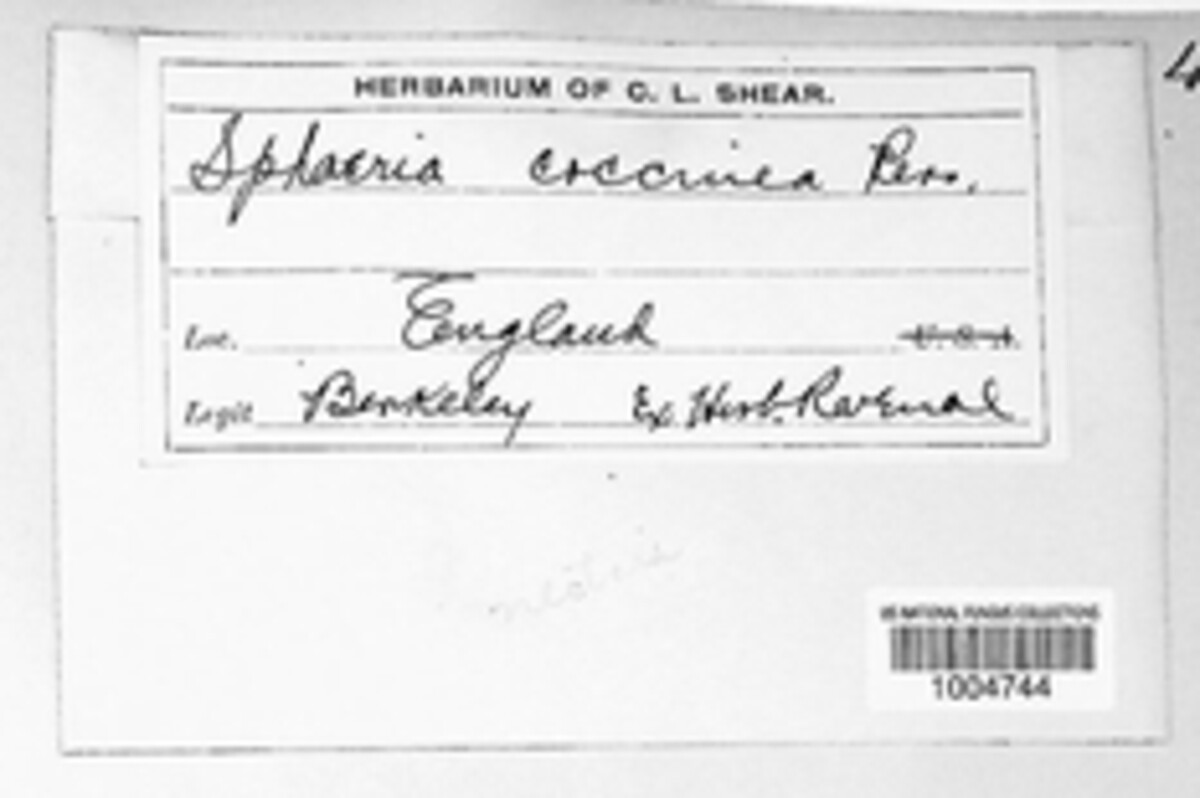 HERBARIUM OF C. L. SHEAR.
Sphaeria coccinea Pers.
Loc. England U. S. A.
Legit Berkeley Ex Herb. Ravenal
US NATIONAL FUNGUS COLLECTIONS
1004744